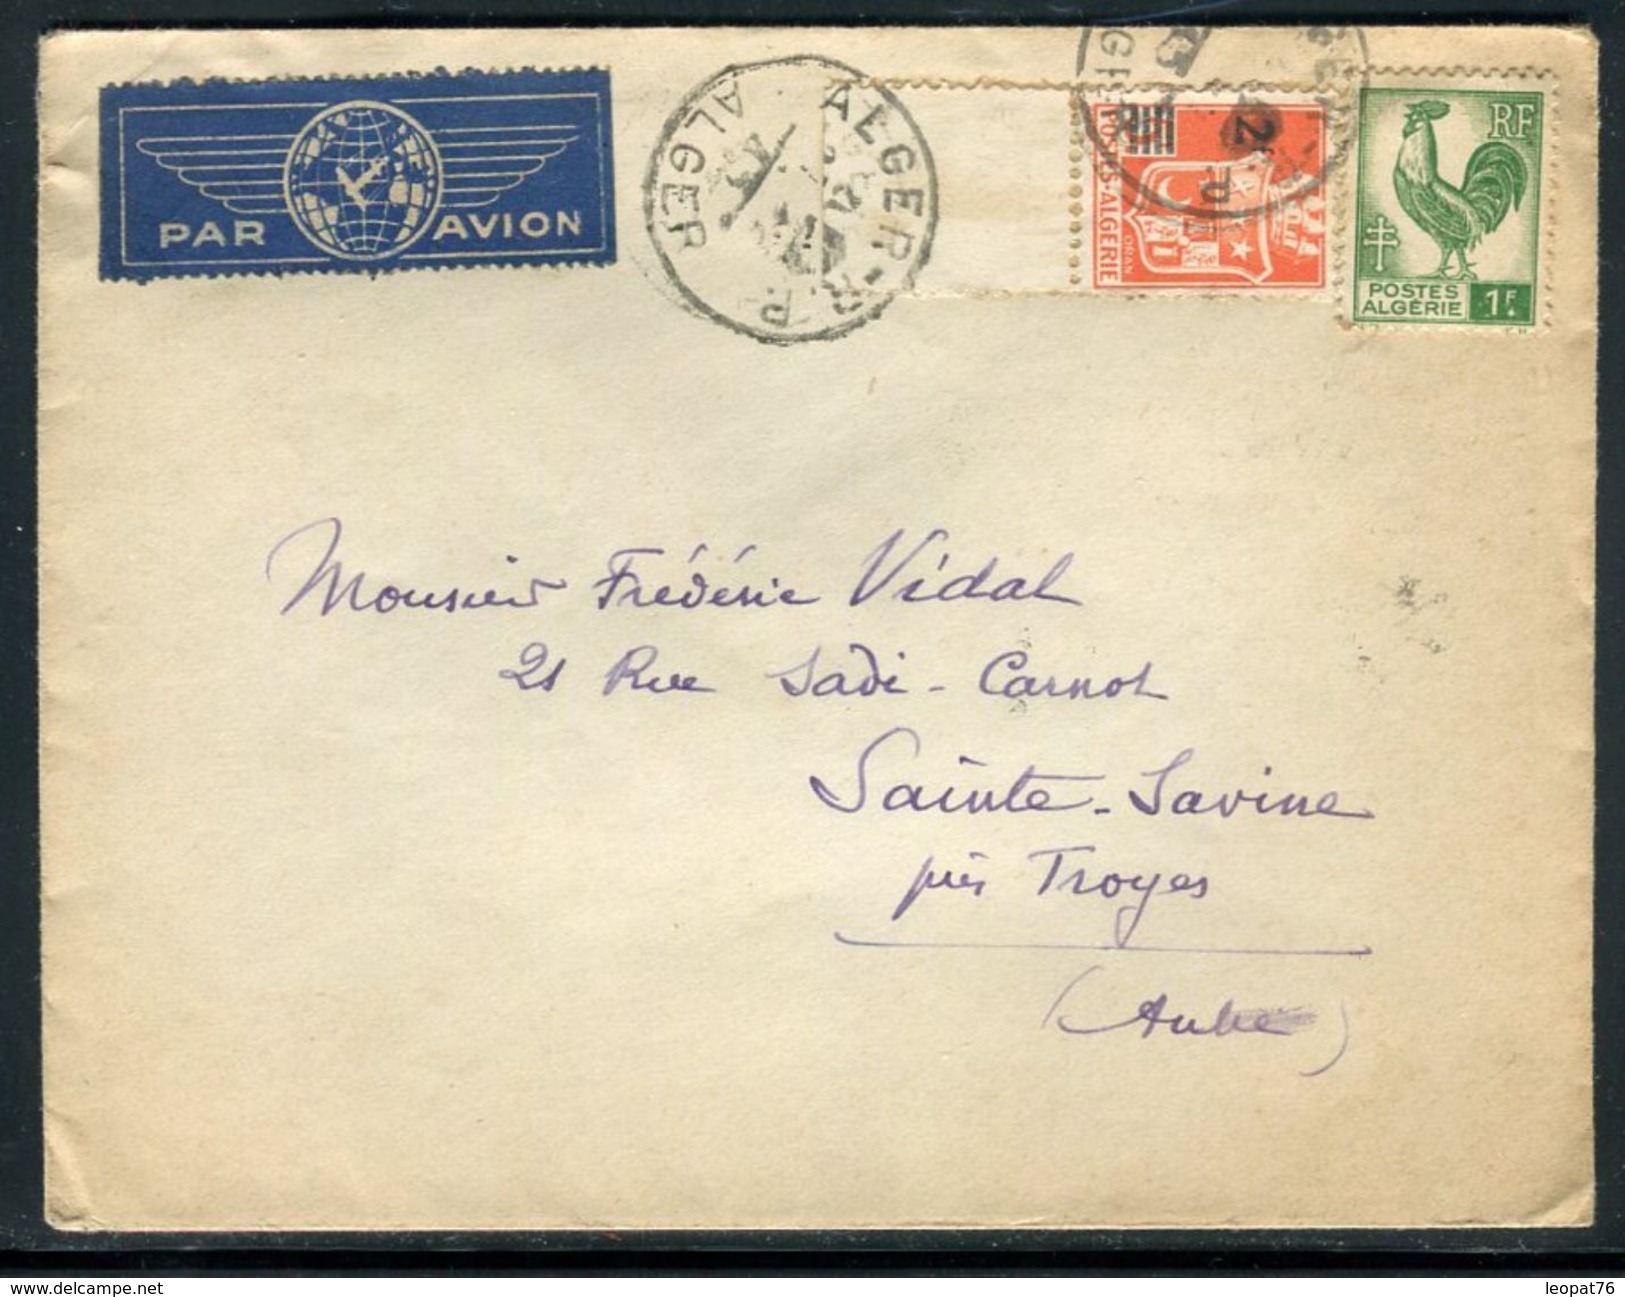 PAR AVION
ALGER R.P.
ALGER
2F
POSTES-ALGÉRIE
ORAN
RF
POSTES
ALGÉRIE 1F
Monsieur Frédéric Vidal
21 Rue Sadi-Carnot
Sainte-Savine
près Troyes
(Aube)
leopat76